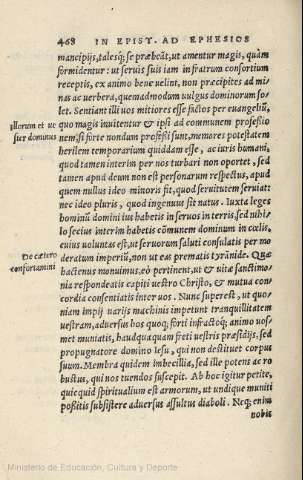 468 IN EPIST. AD EPHESIOS
mancipijs, talesq; se præbeãt, ut amentur magis, quàm
formidentur: ut seruis suis iam in fratrum consortium
receptis, ex animo bene uelint, non præcipites ad mi-
nas ac uerbera, quemadmodum uulgus dominorum so-
let. Sentiant illi uos mitiores esse factos per euangeliũ,
quo magis inuitentur & ipsi ad communem professio
nem, si forte nondum professi sunt, memores potestatem
herilem temporarium quiddam esse, ac iuris humani,
quod tamen interim per nos turbari non oportet, sed
tamen apud deum non est personarum respectus, apud
quem nullus ideo minoris fit, quod seruitutem seruiat:
nec ideo pluris, quod ingenuus sit natus. Iuxta leges
hominũ domini ius habetis in seruos in terris, sed nihi-
lo secius interim habetis cõmunem dominum in cœlis,
cuius uoluntas est, ut seruorum saluti consulatis per mo
deratum imperiũ, non ut eas prematis tyrãnide. Quæ
hactenus monuimus, eò pertinent, ut & uitæ sanctimo-
nia respondeatis capiti uestro Christo, & mutua con-
cordia consentiatis inter uos. Nunc superest, ut quo-
niam impij uarijs machinis impetunt tranquillitatem
uestram, aduersus hos quoq; forti infractoq; animo uos-
met muniatis, haudquaquam freti uestris præsidijs, sed
propugnatore domino Iesu, qui non destituet corpus
suum. Membra quidem imbecillia, sed ille potens ac ro
bustus, qui nos tuendos suscepit. Ab hoc igitur petite,
quicquid spiritualium est armorum, ut undique muniti
possitis subsistere aduersus assultus diaboli. Neq; enim
nobis
illorum et ue
ster dominus
De cætero
confortamini
Ministerio de Educación, Cultura y Deporte